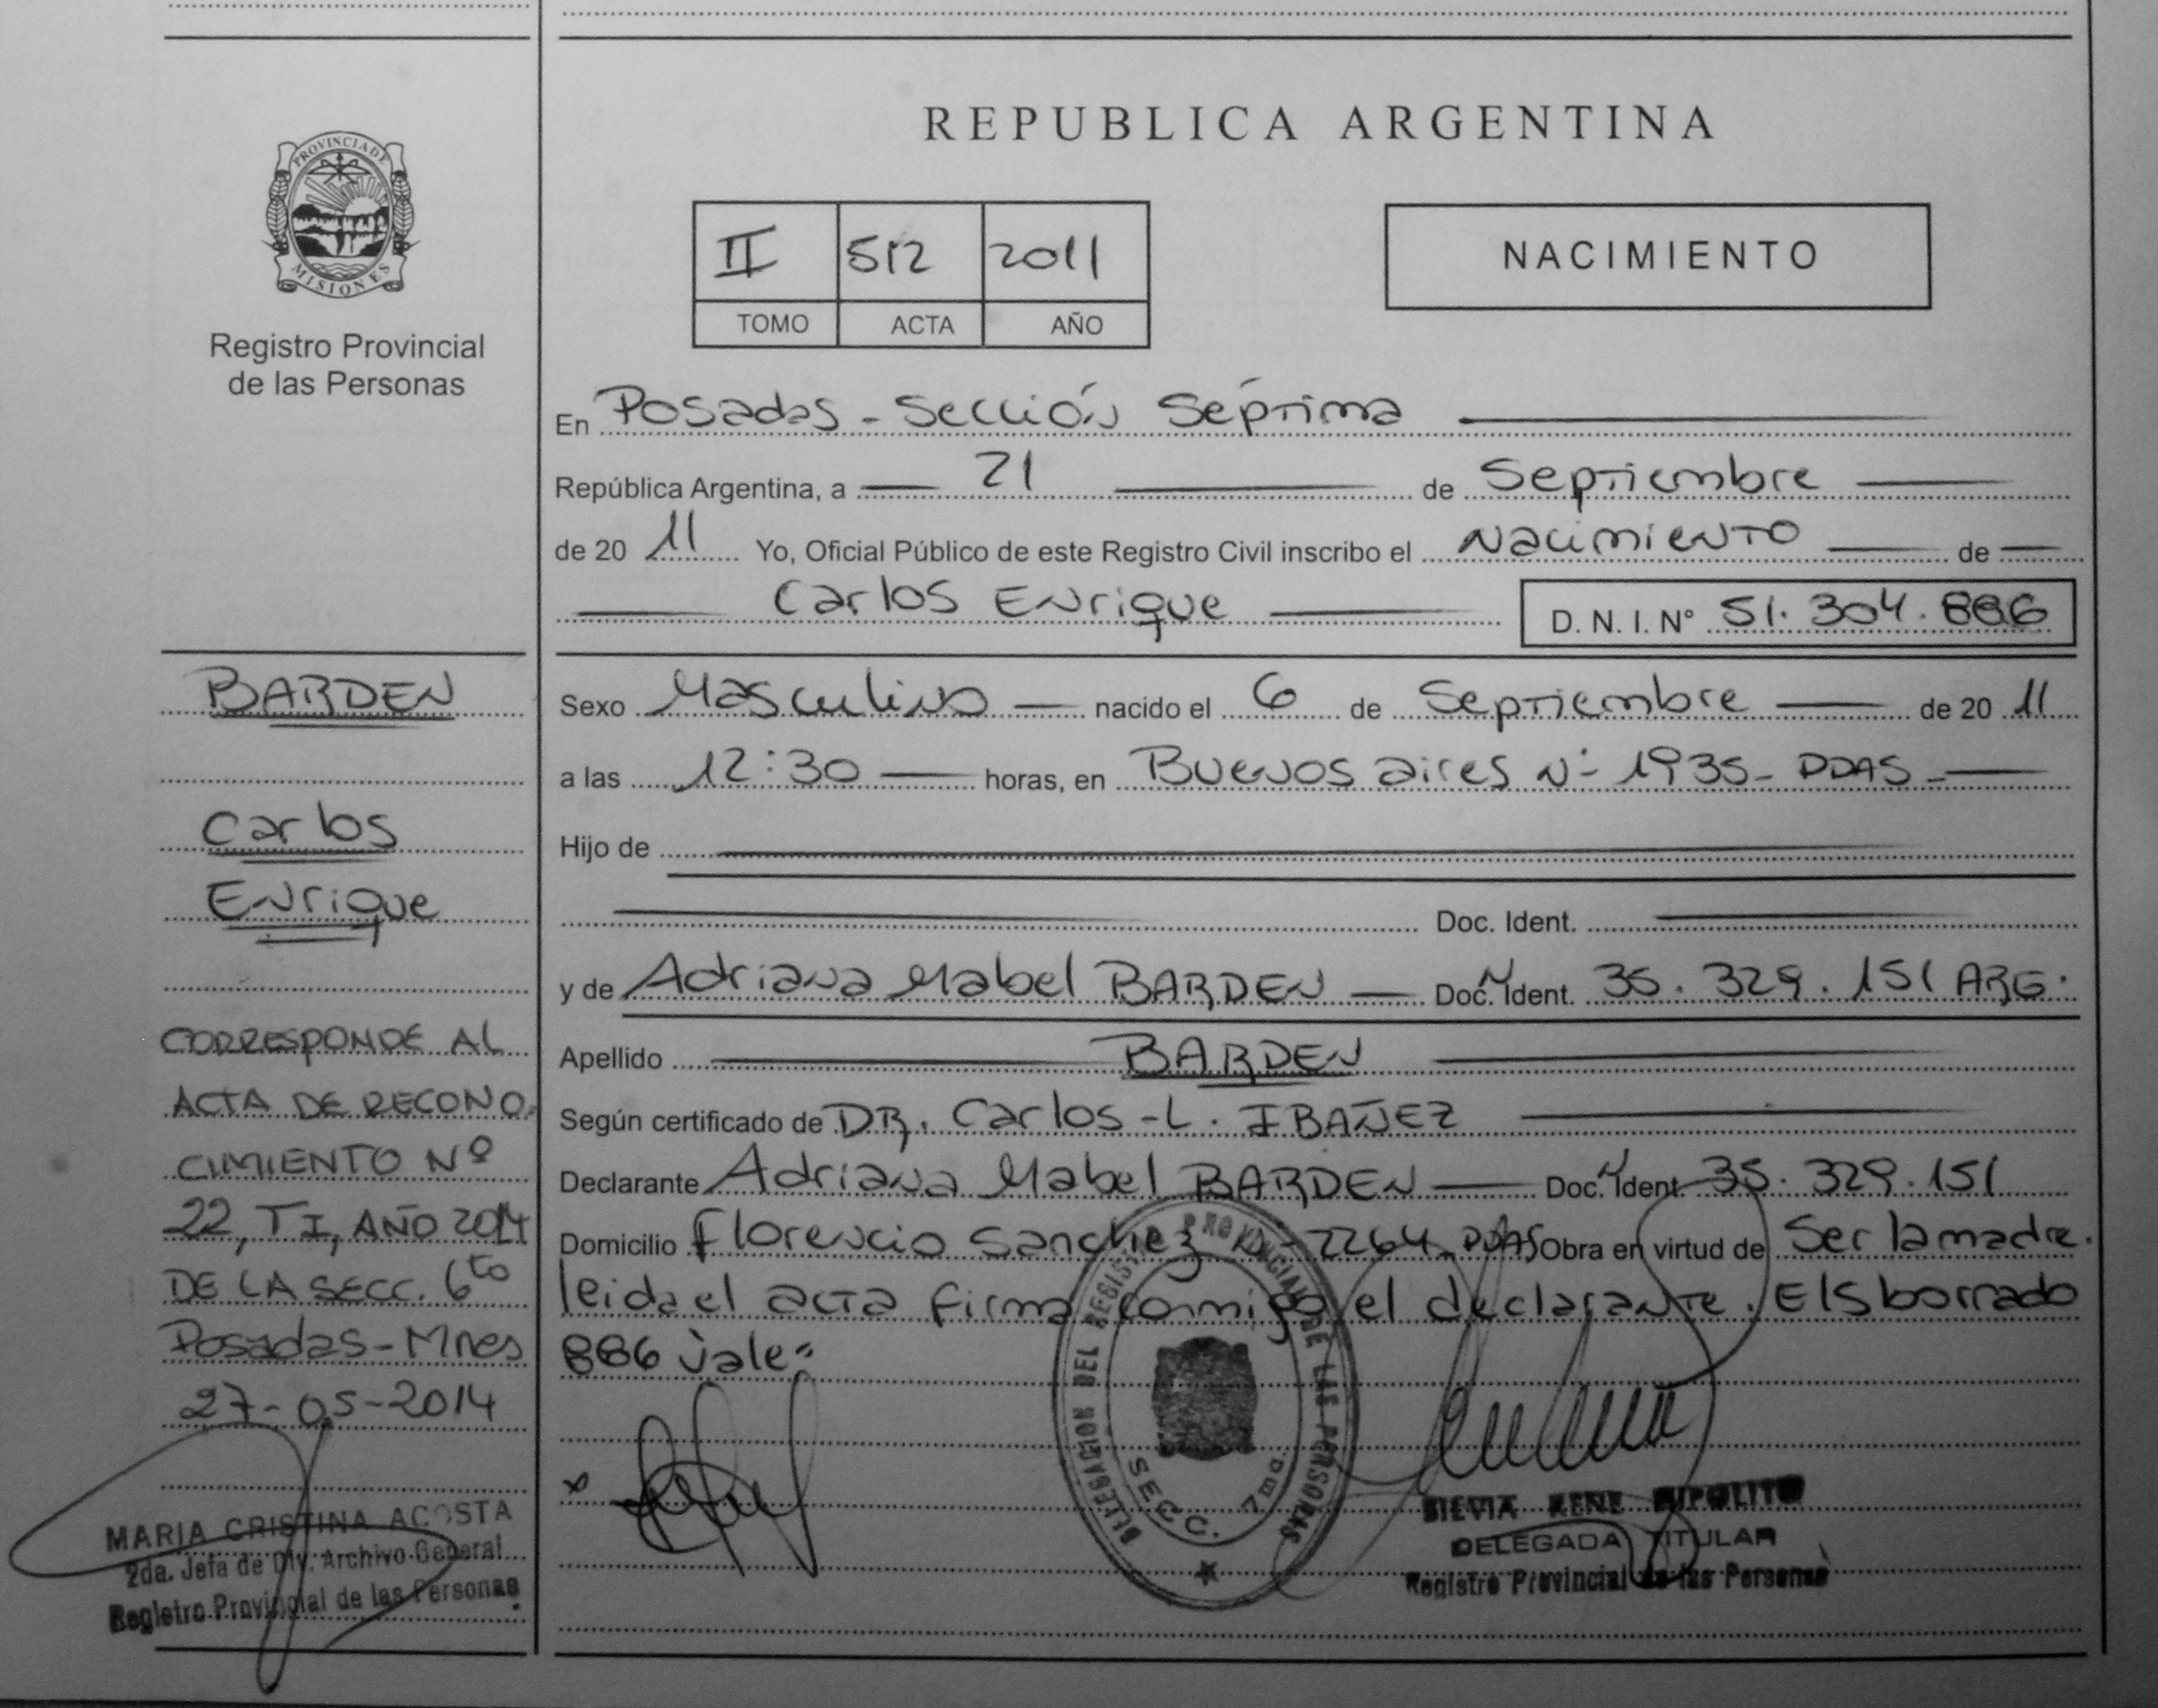 PROVINCIA DE
MISIONES
Registro Provincial
de las Personas
BARDEN
Carlos
Enrique
CORRESPONDE AL
ACTA DE RECONO.
CIMIENTO Nº
22, T I, AÑO 2014
DE LA SECC. 6to
Posadas - Mnes
27-05-2014
MARIA CRISTINA ACOSTA
2da. Jefa de Div. Archivo General
Registro Provincial de las Personas
REPUBLICA ARGENTINA
II 512 2011
TOMO ACTA AÑO
NACIMIENTO
En Posadas - Sección Séptima
República Argentina, a 21 de Septiembre
de 20 11 Yo, Oficial Público de este Registro Civil inscribo el Nacimiento de
Carlos Enrique D. N. I. Nº 51.304.886
Sexo Masculino nacido el 6 de Septiembre de 20 11
a las 12:30 horas, en Buenos aires Nº 1935 - PDAS -
Hijo de
Doc. Ident.
y de Adriana Mabel BARDEN Doc. N Ident. 35.329.151 ARG.
Apellido BARDEN
Según certificado de DR. Carlos - L. IBAÑEZ
Declarante Adriana Mabel BARDEN Doc. N Ident. 35.329.151
Domicilio Florencio Sanchez Nº 2264 - PDAS Obra en virtud de Ser la madre.
leida el acta firma conmigo el declarante. El S borrado
886 vale=
DELEGACION DEL REGISTRO PROVINCIAL DE LAS PERSONAS
SECC. 7ma.
SILVIA RENE HIPOLITO
DELEGADA TITULAR
Registro Provincial de las Personas